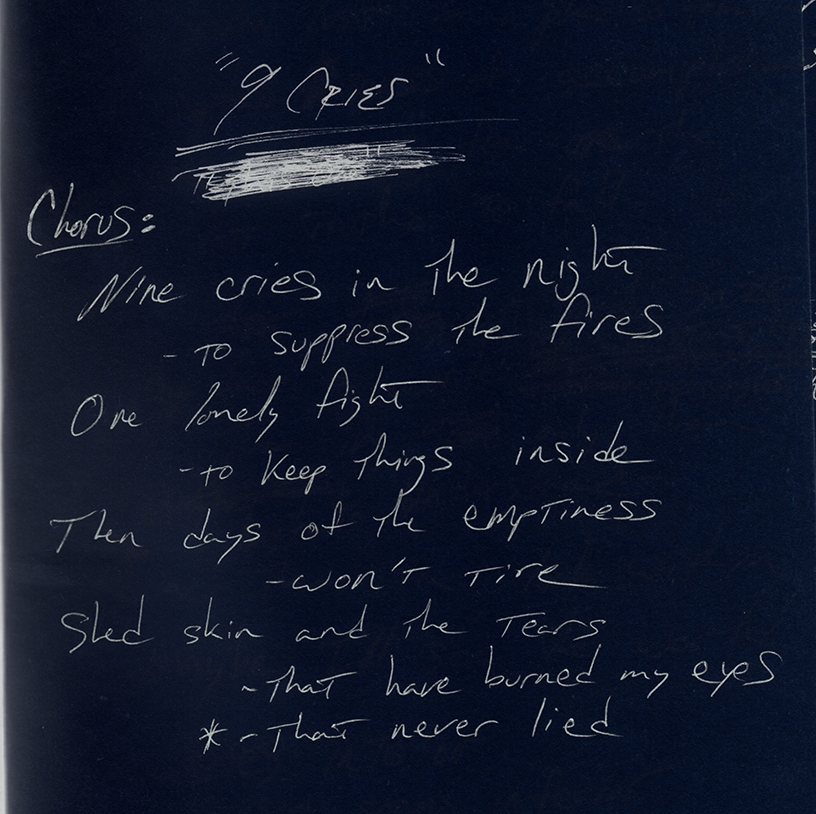 "9 CRIES"
Chorus:
Nine cries in the night
- to suppress the fires
One lonely fight
- to keep things inside
Then days of the emptiness
- won't tire
Shed skin and the tears
- that have burned my eyes
* - that never lied